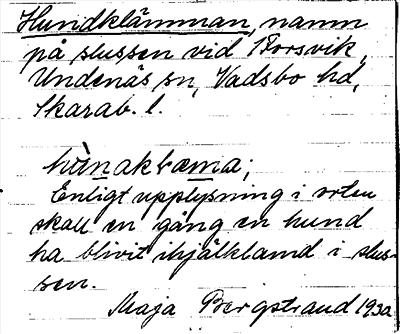 Hundklämman, namn
på slussen vid Forsvik,
Undenäs sn, Vadsbo hd,
Skarab. l.
Enligt upplysning i orten
skall en gång en hund
ha blivit ihjälklämd i slus-
sen.
Maja Bergstrand 1930